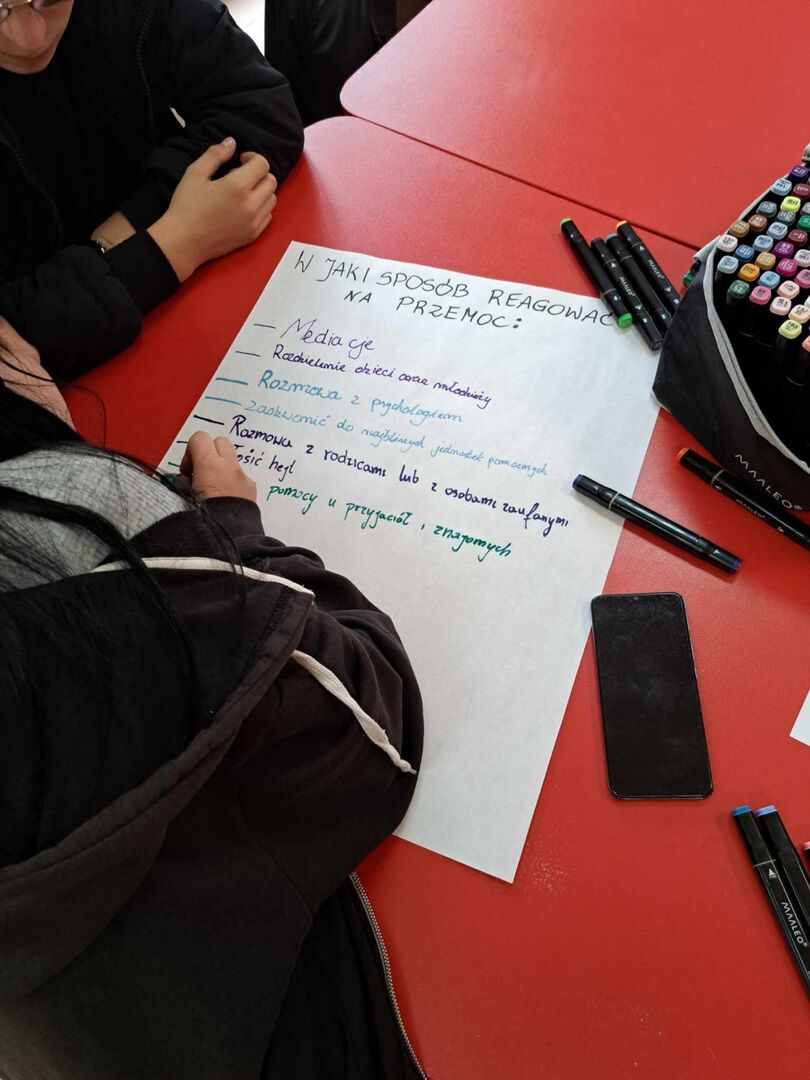 W JAKI SPOSÓB REAGOWAĆ
NA PRZEMOC:
— Mediacje
— Rozdzielenie dzieci oraz młodzieży
— Rozmowa z psychologiem
— zadzwonić do najbliższych jednostek pomocnych
— Rozmowa z rodzicami lub z osobami zaufanymi
hejt
pomocy u przyjaciół i znajomych
MAALEO
MAALEO